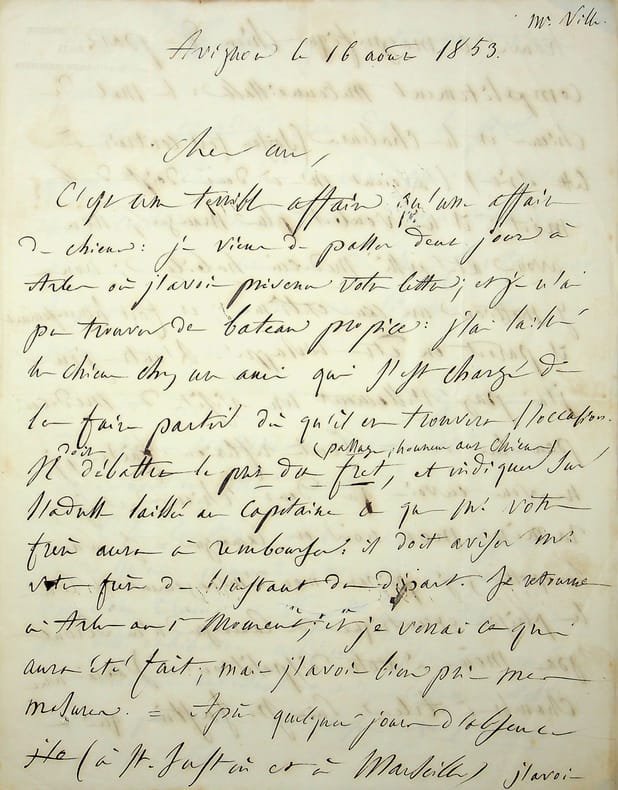 Mr. Ville.
Avignon le 16 août 1853.
Cher ami,
C'est une terrible affaire qu'une affaire
de chiens: je viens de passer deux jours à
Arles où j'avois prévenu votre lettre; et je n'ai
pu trouver de bateau propice: j'ai laissé
le chien chez un ami qui s'est chargé de
le faire partir dès qu'il en trouvera l'occasion.
(passage, honneur aux chiens)
Il doit débattre le prix du fret, et indiquer sur
l'adresse laissée au Capitaine ce que Mr. votre
frère aura à rembourser: il doit aviser Mr.
votre frère de l'instant du départ. Je retourne
à Arles au 1er moment, et je verrai ce qui
aura été fait; mais j'avois bien pris mes
mesures. = Après quelques jours d'absence
(à St. Just où et à Marseille) j'avois